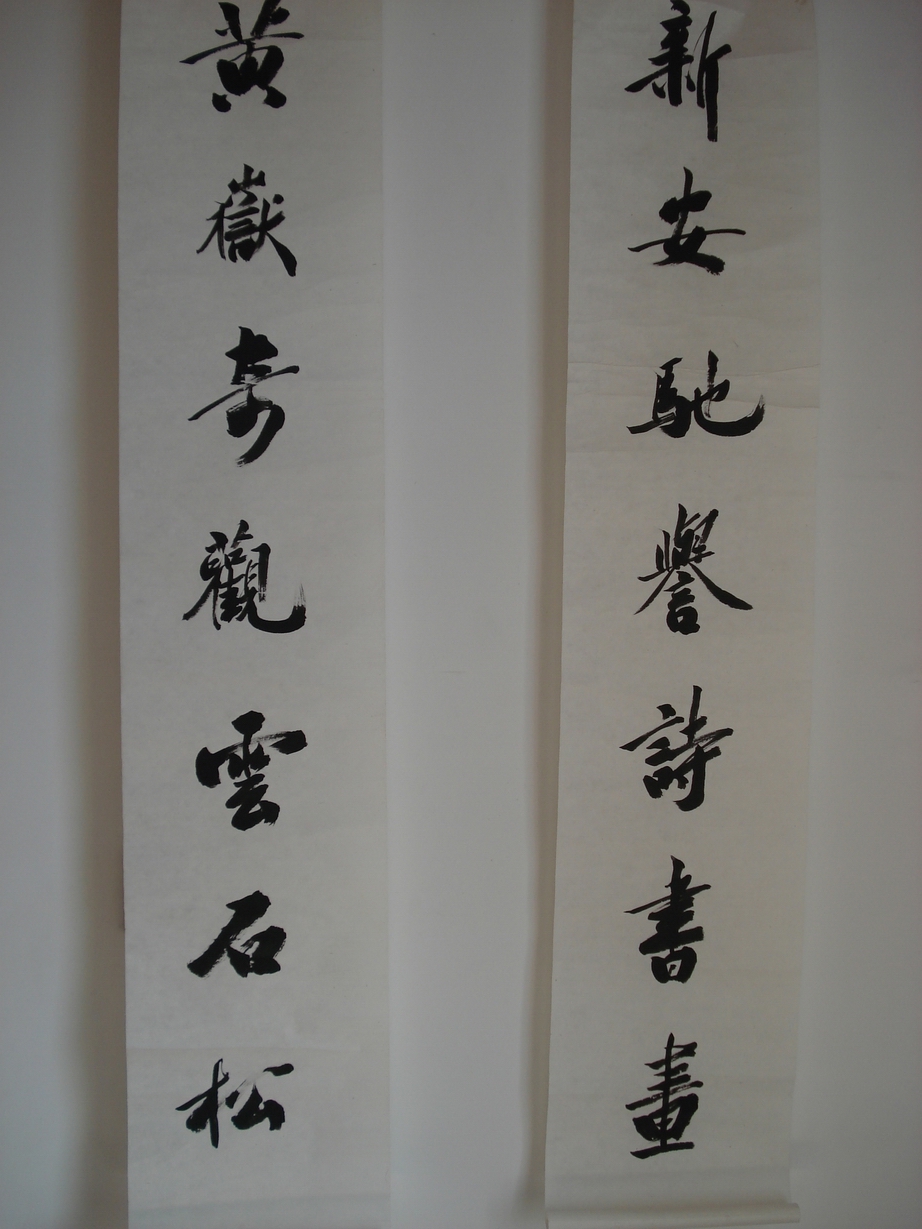 新安馳譽詩書畫
黃嶽奇觀雲石松